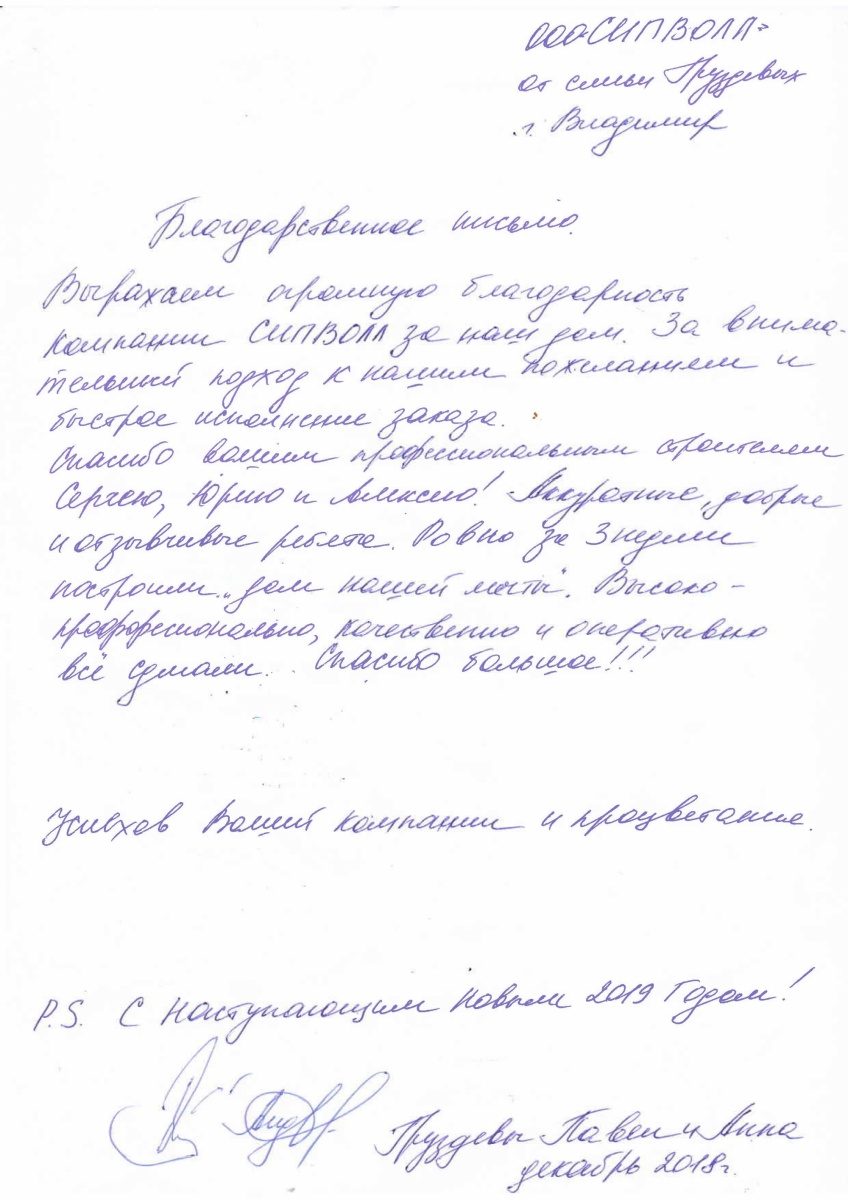 ООО «СИПВОЛЛ»
от семьи Груздевых
г. Владимир
Благодарственное письмо.
Выражаем огромную благодарность
компании СИПВОЛЛ за наш дом. За внима-
тельный подход к нашим пожеланием и
быстрое исполнение заказа.
Спасибо вашим профессиональным строителем
Сергею, Юрию и Алексею! Аккуратные, добрые
и отзывчивые ребята. Ровно за 3 недели
построили „дом нашей мечты". Высоко-
профофессионально, качественно и оперативно
всё сделали. Спасибо большое!!!
Успехов Вашей компании и процветания.
P.S. С наступающим Новым 2019 Годом!
Груздевы Павел и Анна
декабрь 2018г.